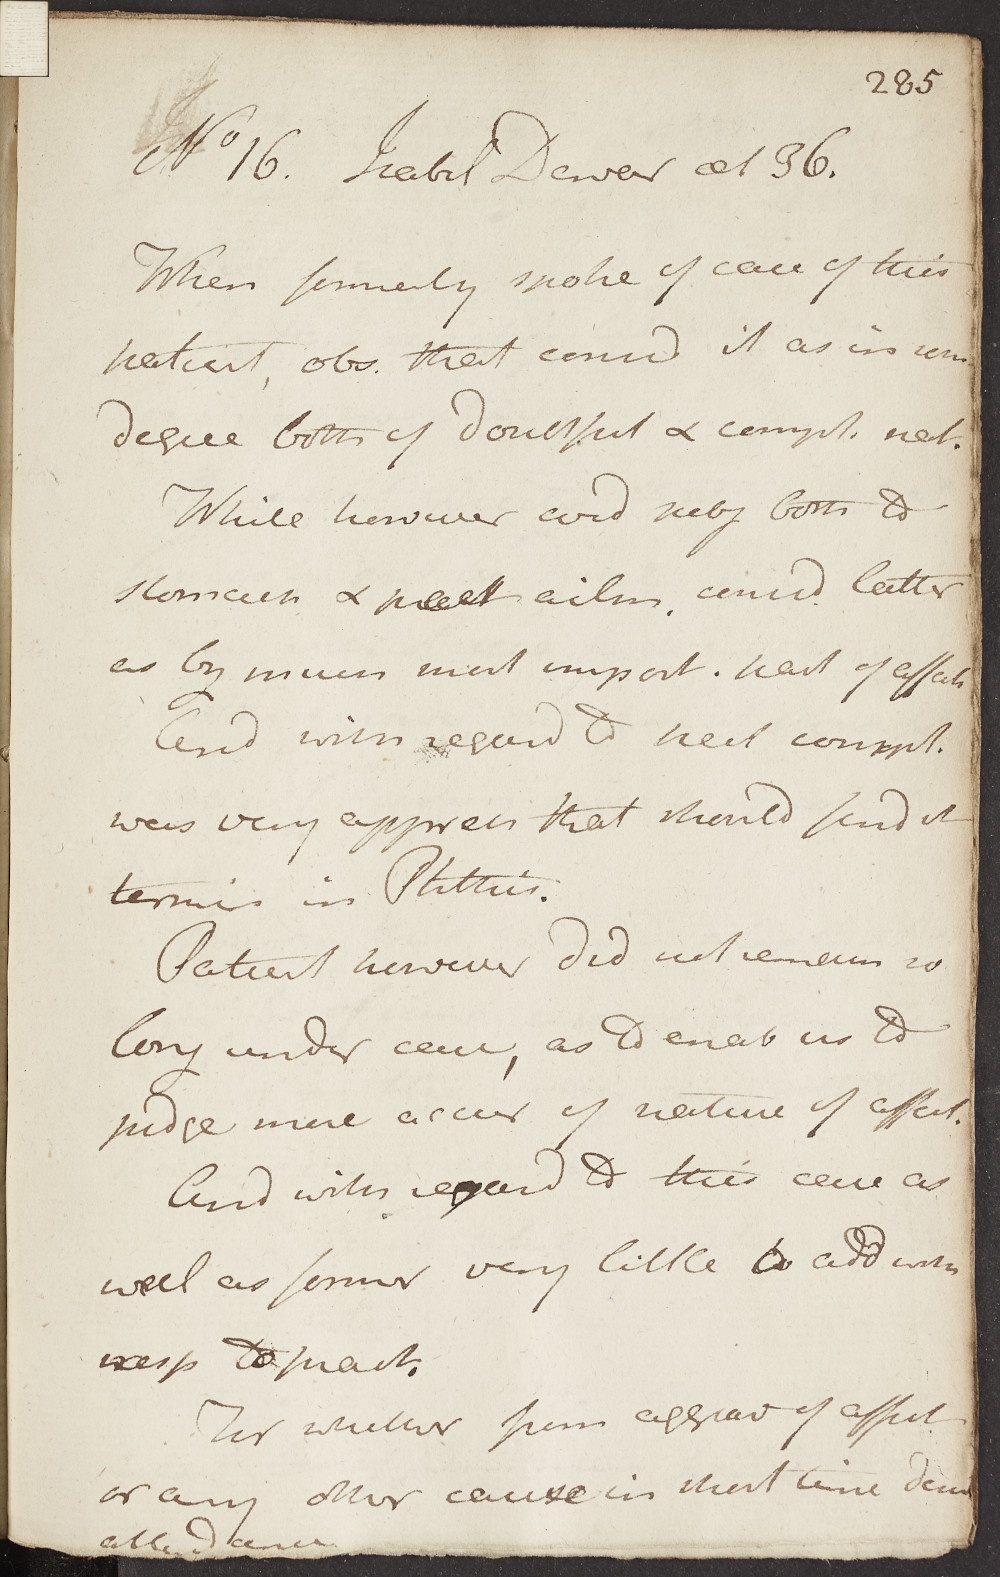 285
No 16. Isabel Dewar aet 36.
When formerly spoke of case of this
patient, obs. that consid it as in som
degree both of doubtful & compl. nat.
While however cons'd subj both to
stomach & pect ailm. consid. latter
as by much most import. part of affect
And with regard to pect compl.
was very appreh that should find it
termin in Phthis.
Patient however did not remain so
long under care, as to enab us to
judge more accur of nature of affect.
And with regard to this case as
well as former very little to add with
resp to pract.
For whether from aggrav of affect
or any other cause in short time
attendance